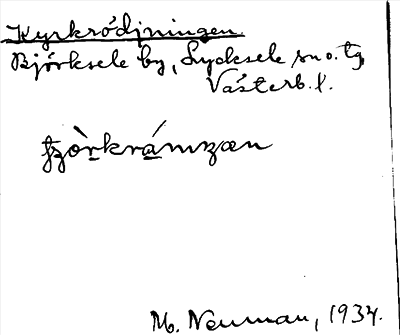 Kyrkrödjningen
Björksele by, Lycksele sn o. tg,
Västerb. l.
M. Neuman, 1934.